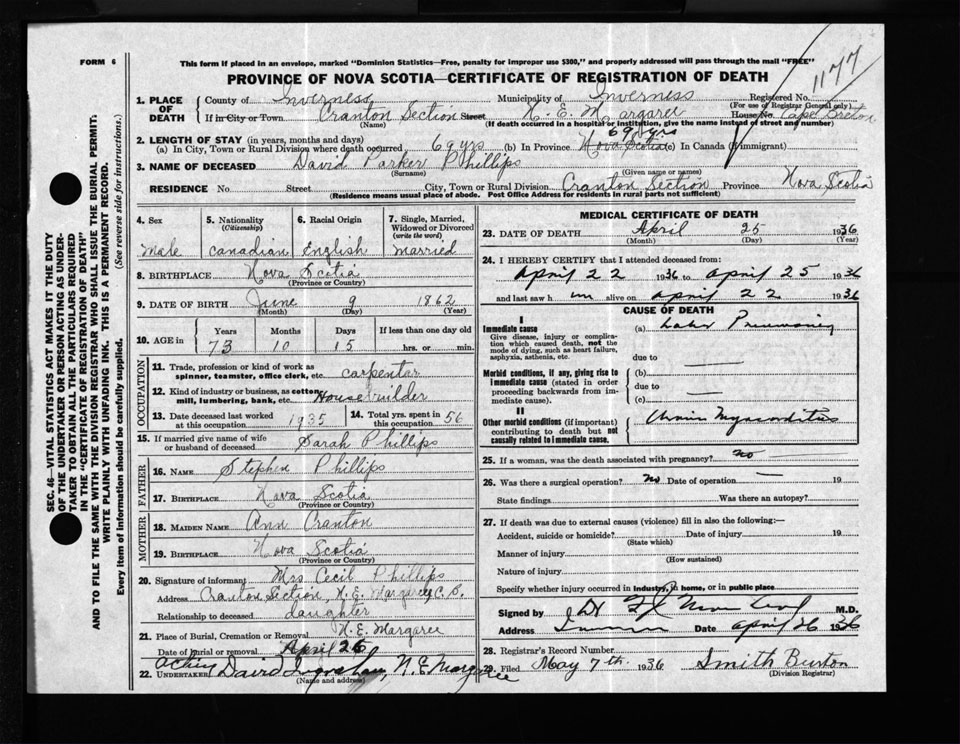 FORM 6
This form if placed in an envelope, marked "Dominion Statistics—Free, penalty for improper use $300," and properly addressed will pass through the mail "FREE"
1177
PROVINCE OF NOVA SCOTIA—CERTIFICATE OF REGISTRATION OF DEATH
1. PLACE OF DEATH
County of Inverness Municipality of Inverness Registered No.
(For use of Registrar General only)
If in City or Town Cranton Section Street N. E. Margaree House No. Cape Breton
(Name) (If death occurred in a hospital or institution, give the name instead of street and number)
2. LENGTH OF STAY (in years, months and days)
69 yrs
(a) In City, Town or Rural Division where death occurred 69 yrs (b) In Province Nova Scotia (c) In Canada (if immigrant)
3. NAME OF DECEASED David Parker Phillips
(Surname) (Given name or names)
RESIDENCE No. Street City, Town or Rural Division Cranton Section Province Nova Scotia
(Residence means usual place of abode. Post Office Address for residents in rural parts not sufficient)
4. Sex Male
5. Nationality (Citizenship) Canadian
6. Racial Origin English
7. Single, Married, Widowed or Divorced (write the word) Married
8. BIRTHPLACE Nova Scotia
(Province or Country)
9. DATE OF BIRTH June 9 1862
(Month) (Day) (Year)
10. AGE in Years Months Days If less than one day old
73 10 15 hrs. or min.
OCCUPATION
11. Trade, profession or kind of work as spinner, teamster, office clerk, etc. carpenter
12. Kind of industry or business, as cotton mill, lumbering, bank, etc. House builder
13. Date deceased last worked at this occupation 1935
14. Total yrs. spent in this occupation 56
15. If married give name of wife or husband of deceased Sarah Phillips
FATHER
16. NAME Stephen Phillips
17. BIRTHPLACE Nova Scotia
(Province or Country)
MOTHER
18. MAIDEN NAME Ann Cranton
19. BIRTHPLACE Nova Scotia
(Province or Country)
20. Signature of informant Mrs Cecil Phillips
Address Cranton Section, N. E. Margaree, C. B.
Relationship to deceased daughter
21. Place of Burial, Cremation or Removal N. E. Margaree
Date of Burial or removal April 26
Acting
22. UNDERTAKER David Ingraham, N. E. Margaree
(Name and address)
MEDICAL CERTIFICATE OF DEATH
23. DATE OF DEATH April 25 1936
(Month) (Day) (Year)
24. I HEREBY CERTIFY that I attended deceased from:
April 22 1936 to April 25 1936
and last saw h im alive on April 22 1936
CAUSE OF DEATH
I
Immediate cause
Give disease, injury or complication which caused death, not the mode of dying, such as heart failure, asphyxia, asthenia, etc.
(a) Lobar Pneumonia
due to
Morbid conditions, if any, giving rise to immediate cause (stated in order proceeding backwards from immediate cause).
(b)
due to
(c)
II
Other morbid conditions (if important) contributing to death but not causally related to immediate cause.
Chronic Myocarditis
25. If a woman, was the death associated with pregnancy? no
26. Was there a surgical operation? No Date of operation 19
State findings Was there an autopsy?
27. If death was due to external causes (violence) fill in also the following:—
Accident, suicide or homicide? Date of injury 19
(State which)
Manner of injury
(How sustained)
Nature of injury
Specify whether injury occurred in industry, in home, or in public place
Signed by M.D.
Address Date April 26 1936
28. Registrar's Record Number
29. Filed May 7th. 1936 Smith Burton
(Division Registrar)
SEC. 46—VITAL STATISTICS ACT MAKES IT THE DUTY
OF THE UNDERTAKER OR PERSON ACTING AS UNDER-
TAKER TO OBTAIN ALL THE PARTICULARS REQUIRED
IN THE "CERTIFICATE OF REGISTRATION OF DEATH"
AND TO FILE THE SAME WITH THE DIVISION REGISTRAR WHO SHALL ISSUE THE BURIAL PERMIT:
WRITE PLAINLY WITH UNFADING INK. THIS IS A PERMANENT RECORD.
Every item of information should be carefully supplied. (See reverse side for instructions.)